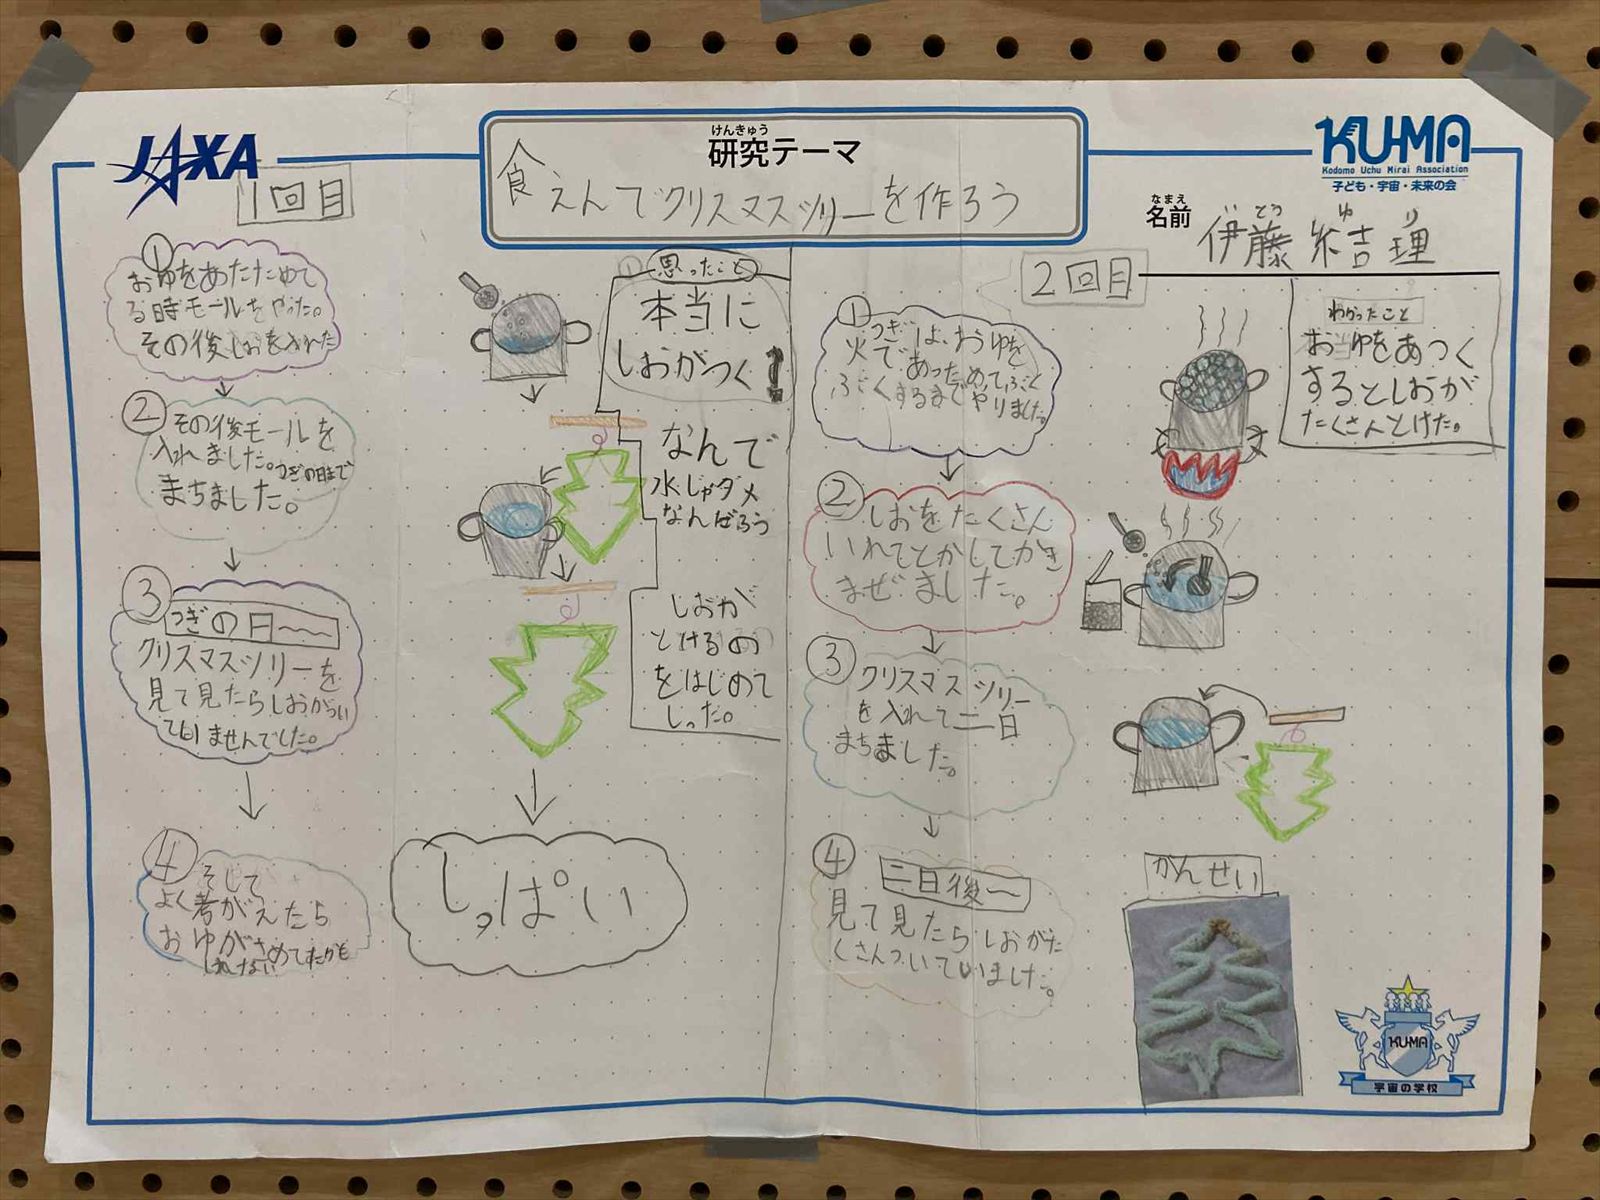 JAXA
けんきゅう
研究テーマ
食えんでクリスマスツリーを作ろう
KU-MA
Kodomo Uchu Mirai Association
子ども・宇宙・未来の会
なまえ
名前
いとう ゆり
伊藤 結理
1回目
①
おゆをあたためて
る時モールをやった。
その後しおを入れた
②
その後モールを
入れました。つぎの日まで
まちました。
③
つぎの日〜〜
クリスマスツリーを
見て見たらしおがつい
ていませんでした。
④
そして
よく考がえたら
おゆがさめてたかも
しれない
しっぱい
思ったこと
本当に
しおがつく!
なんで
水じゃダメ
なんだろう
しおが
とけるの
をはじめて
しった。
2回目
①
つぎは、おゆを
火であっためてぶく
ぶくするまでやりました。
②
しおをたくさん
いれてとかしてかき
まぜました。
③
クリスマスツリー
を入れて二日
まちました。
④
二日後〜
見て見たらしおがた
くさんついていました。
わかったこと
おゆをあつく
するとしおが
たくさんとけた。
かんせい
KU-MA
宇宙の学校